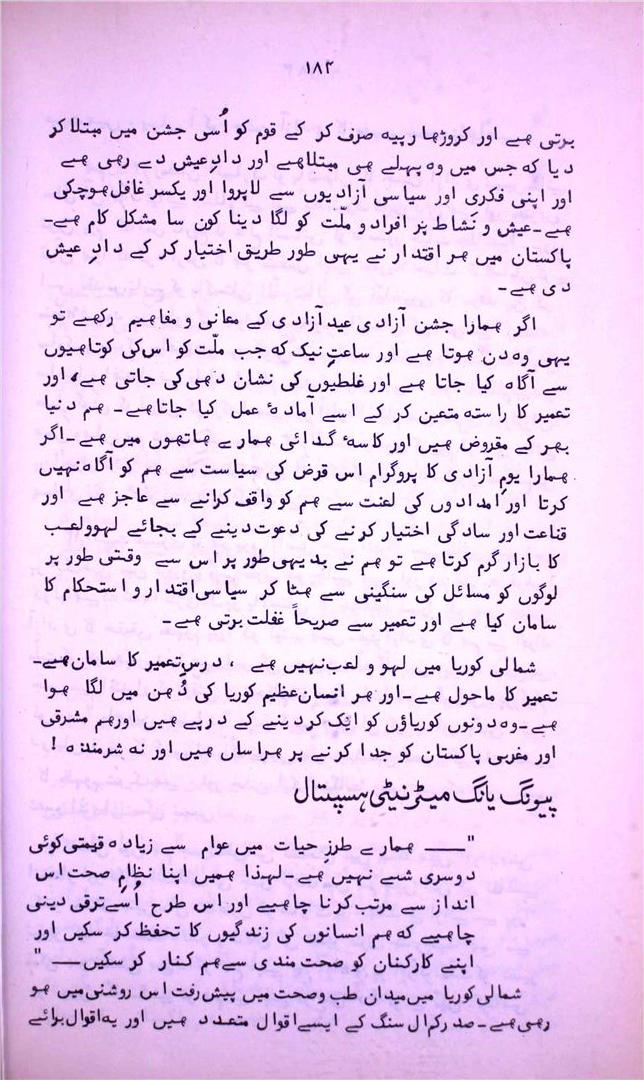 ۱۸۴
برتی ھے اور کروڑھا رپیہ صرف کر کے قوم کو اُسی جشن میں مبتلا کر
دیا کہ جس میں وہ پہلے ھی مبتلا ھے اور دادِ عیش دے رھی ھے
اور اپنی فکری اور سیاسی آزادیوں سے لاپروا اور یکسر غافل ھوچکی
ھے۔ عیش و نَشاط پر افراد و ملّت کو لگا دینا کون سا مشکل کام ھے۔
پاکستان میں ھر اقتدار نے یہی طور طریق اختیار کر کے دادِ عیش
دی ھے۔
اگر ھمارا جشن آزادی عید آزادی کے معانی و مفاھیم رکھے تو
یہی وہ دن ھوتا ھے اور ساعتِ نیک کہ جب ملّت کو اس کی کوتاھیوں
سے آگاہ کیا جاتا ھے اور غلطیوں کی نشان دھی کی جاتی ھے، اور
تعمیر کا راستہ متعین کر کے اسے آمادۂ عمل کیا جاتا ھے۔ ھم دنیا
بھر کے مقروض ھیں اور کاسۂ گدائی ھمارے ھاتھوں میں ھے۔ اگر
ھمارا یومِ آزادی کا پروگرام اس قرض کی سیاست سے ھم کو آگاہ نہیں
کرتا اور امدادوں کی لعنت سے ھم کو واقف کرانے سے عاجز ھے اور
قناعت اور سادگی اختیار کرنے کی دعوت دینے کے بجائے لہو و لعب
کا بازار گرم کرتا ھے تو ھم نے بدیہی طور پر اس سے وقتی طور پر
لوگوں کو مسائل کی سنگینی سے ھٹا کر سیاسی اقتدار و استحکام کا
سامان کیا ھے اور تعمیر سے صریحاً غفلت برتی ھے۔
شمالی کوریا میں لہو و لعب نہیں ھے ، درسِ تعمیر کا سامان ھے۔
تعمیر کا ماحول ھے۔ اور ھر انسان عظیم کوریا کی دُھن میں لگا ھوا
ھے۔ وہ دونوں کوریاؤں کو ایک کر دینے کے درپے ھیں اور ھم مشرقی
اور مغربی پاکستان کو جدا کرنے پر ھراساں ھیں اور نہ شرمندہ !
پیونگ یانگ میٹرنیٹی ہسپتال
"—— ھمارے طرزِ حیات میں عوام سے زیادہ قیمتی کوئی
دوسری شے نہیں ھے۔ لہذا ھمیں اپنا نظامِ صحت اس
انداز سے مرتب کرنا چاھیے اور اس طرح اُسے ترقی دینی
چاھیے کہ ھم انسانوں کی زندگیوں کا تحفظ کر سکیں اور
اپنے کارکنان کو صحت مندی سے ھم کنار کر سکیں——"
شمالی کوریا میں میدان طب و صحت میں پیش رفت اس روشنی میں ھو
رھی ھے۔ صدر کم ال سنگ کے ایسے اقوال متعدد ھیں اور یہ اقوال برائے